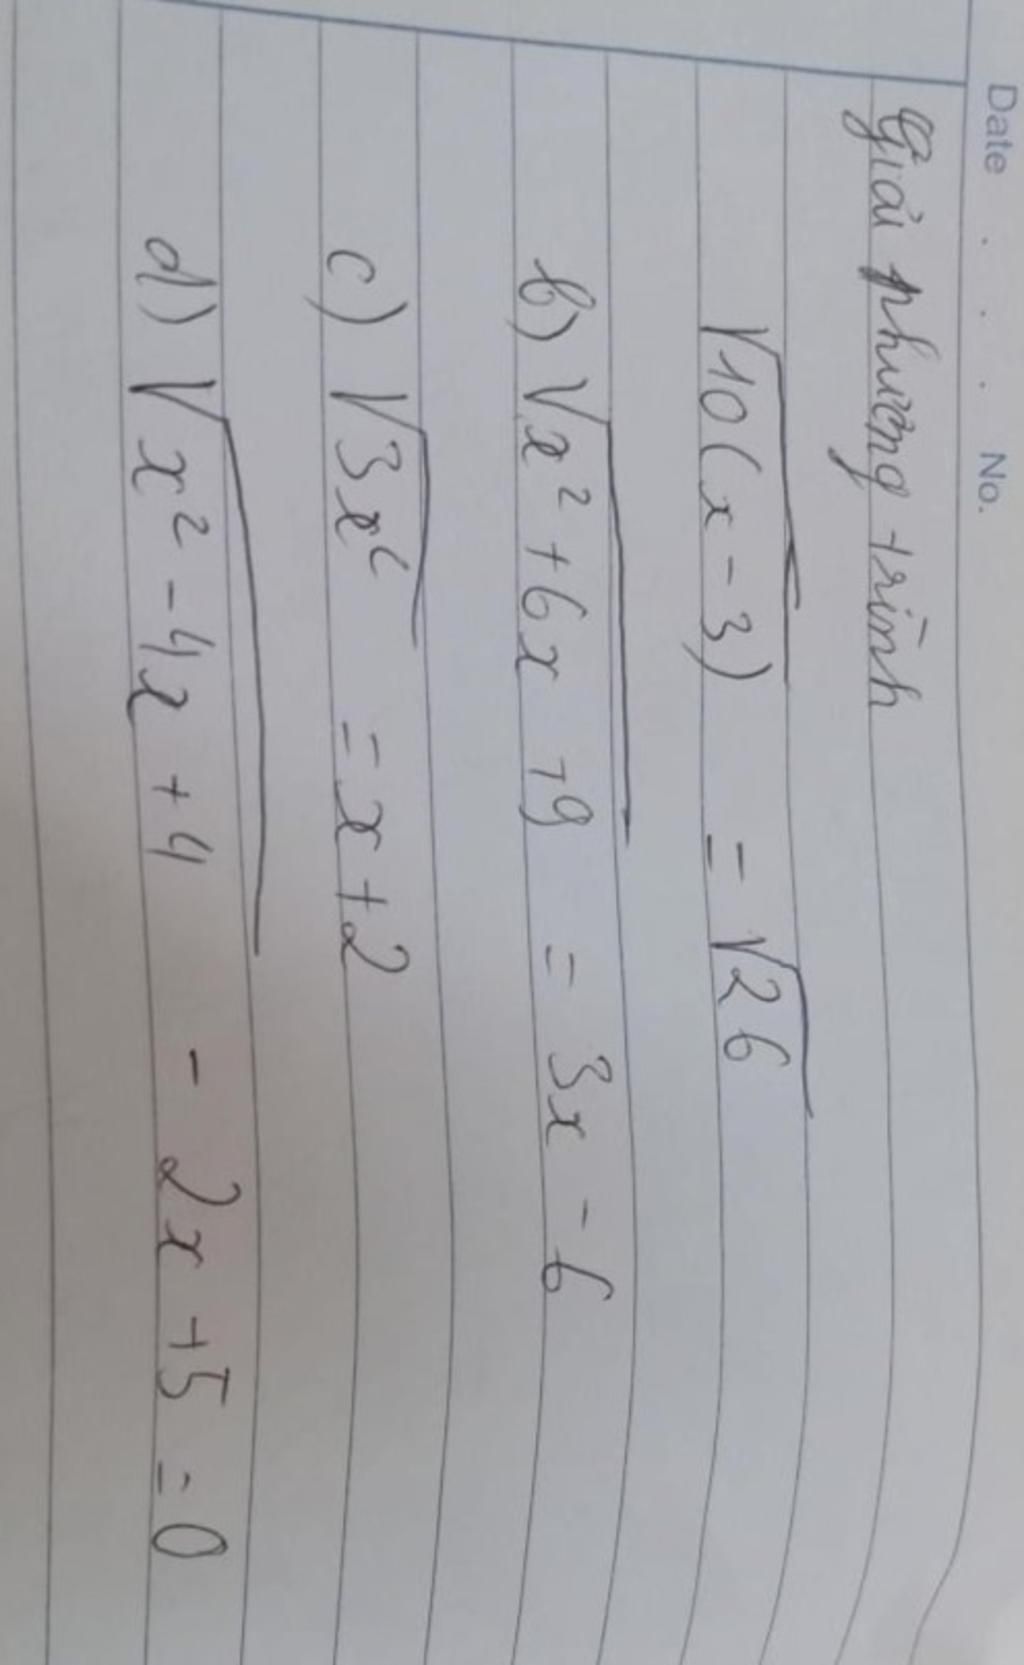 Date . . . No.
Giải phương trình
√10(x-3) = √26
b) √x²+6x+9 = 3x - 6
c) √3x² = x+2
d) √x²-4x+4 - 2x+5=0